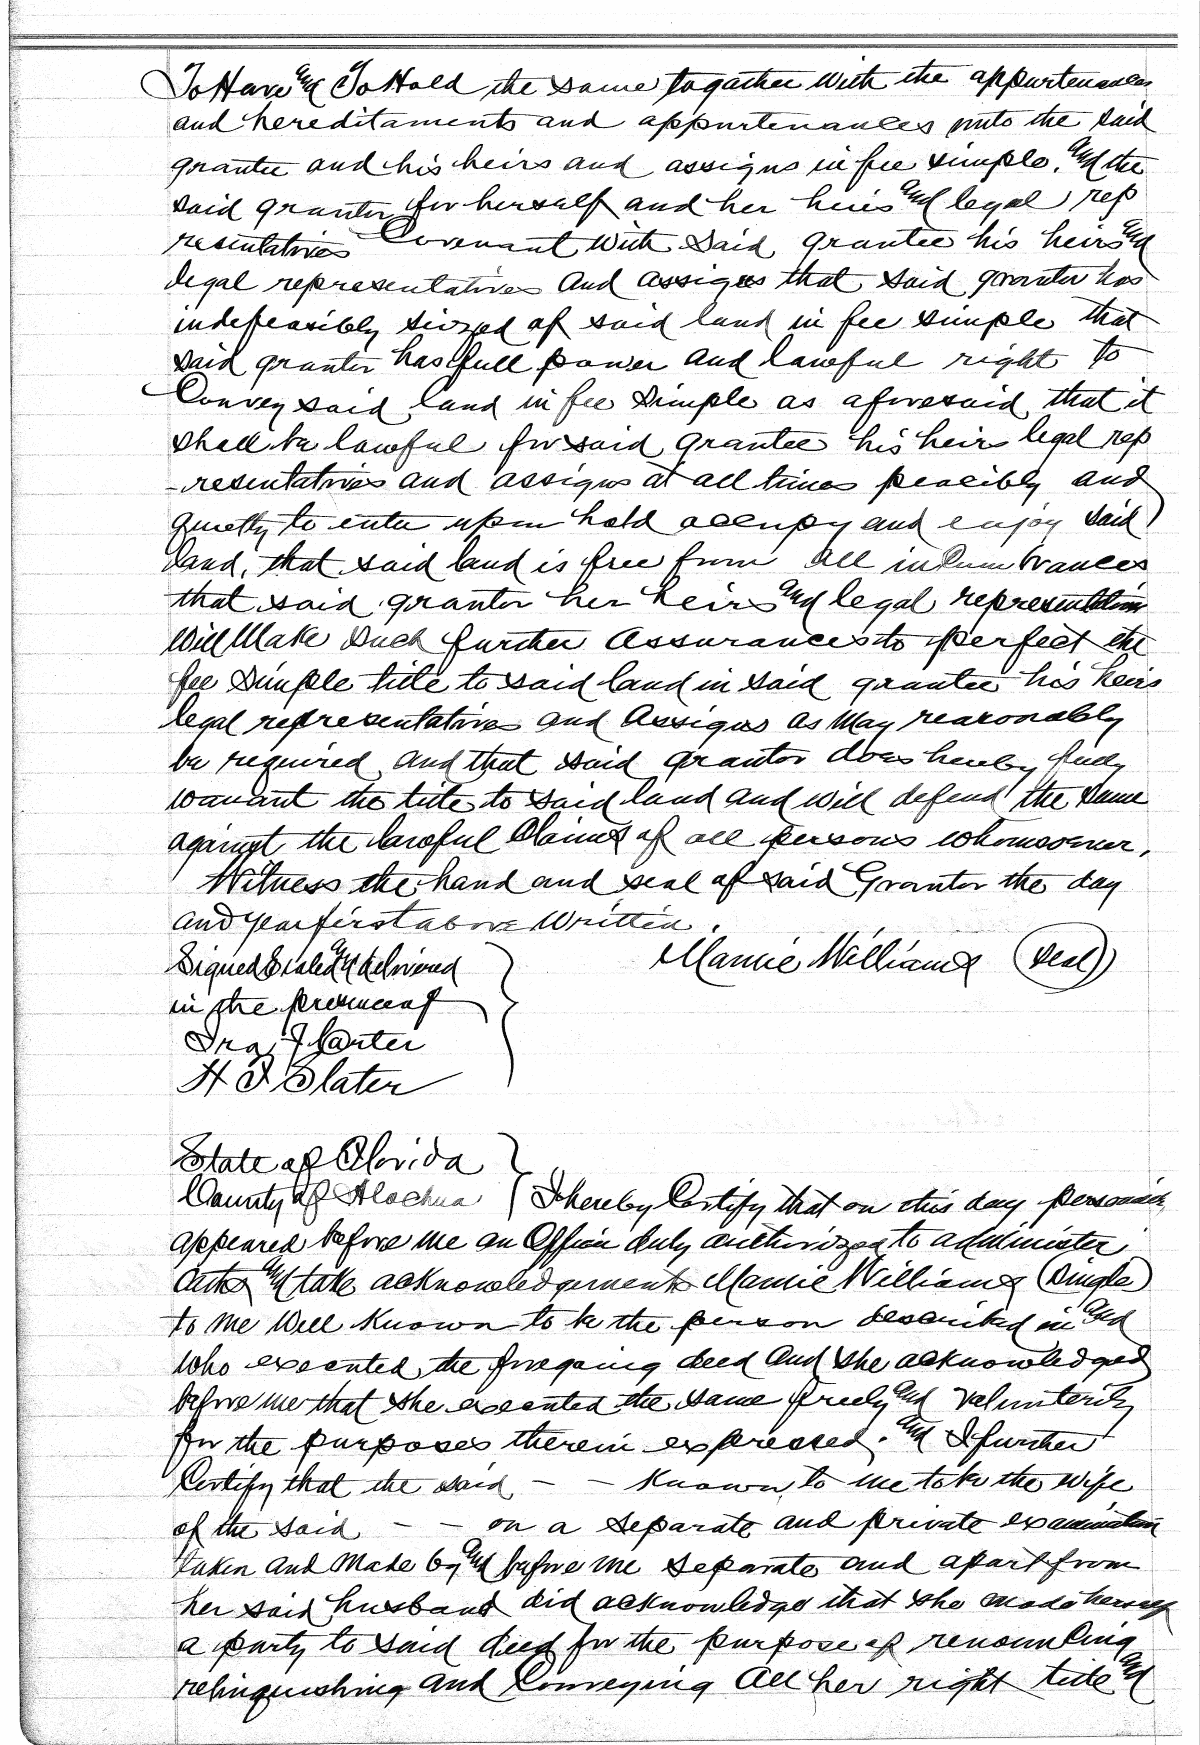 To Have and To Hold the same togather with the appurtenances
and hereditaments and appurtenances unto the said
grantee and his heirs and assigns in fee simple. And the
said grantor for herself and her heirs and legal rep
resentatives Covenant with said grantee his heirs and
legal representatives and assigns that said grantor has
indefeasibly siezed of said land in fee simple that
said grantor has full power and lawful right to
Convey said land in fee simple as aforesaid that it
shall be lawful for said grantee his heirs legal rep
-resentatives and assigns at all times peacibly and
quietly to enter upon hold occupy and enjoy said
land, that said land is free from all incumbrances
that said grantor her heirs and legal representatives
Will Make such further assurances to perfect the
fee simple title to said land in said grantee his heirs
legal representatives and assigns as May reasonably
be required and that said grantor does hereby fully
warrant the title to said land and will defend the same
against the lawful Claims of all persons whomsoever.
Witness the hand and seal of said Grantor the day
and year first above Written.
Signed Sealed and delivered Mamie Williams (Seal)
in the presence of
Ira J Carter
H F Slater
State of Florida
County of Alachua I hereby Certify that on this day personally
appeared before me an Officer duly authorized to administer
oaths and take acknowledgements Mamie Williams (single)
to me Well Known to be the person described in and
who executed the foregoing deed and she acknowledged
before me that she executed the same freely and volunterily
for the purposes therein expressed. And I further
Certify that the said - - known to me to be the wife
of the said - - on a separate and private examination
taken and Made by and before me separate and apart from
her said husband did acknowledge that she made herself
a party to said deed for the purpose of renouncing
relinquishing and Conveying all her right title and